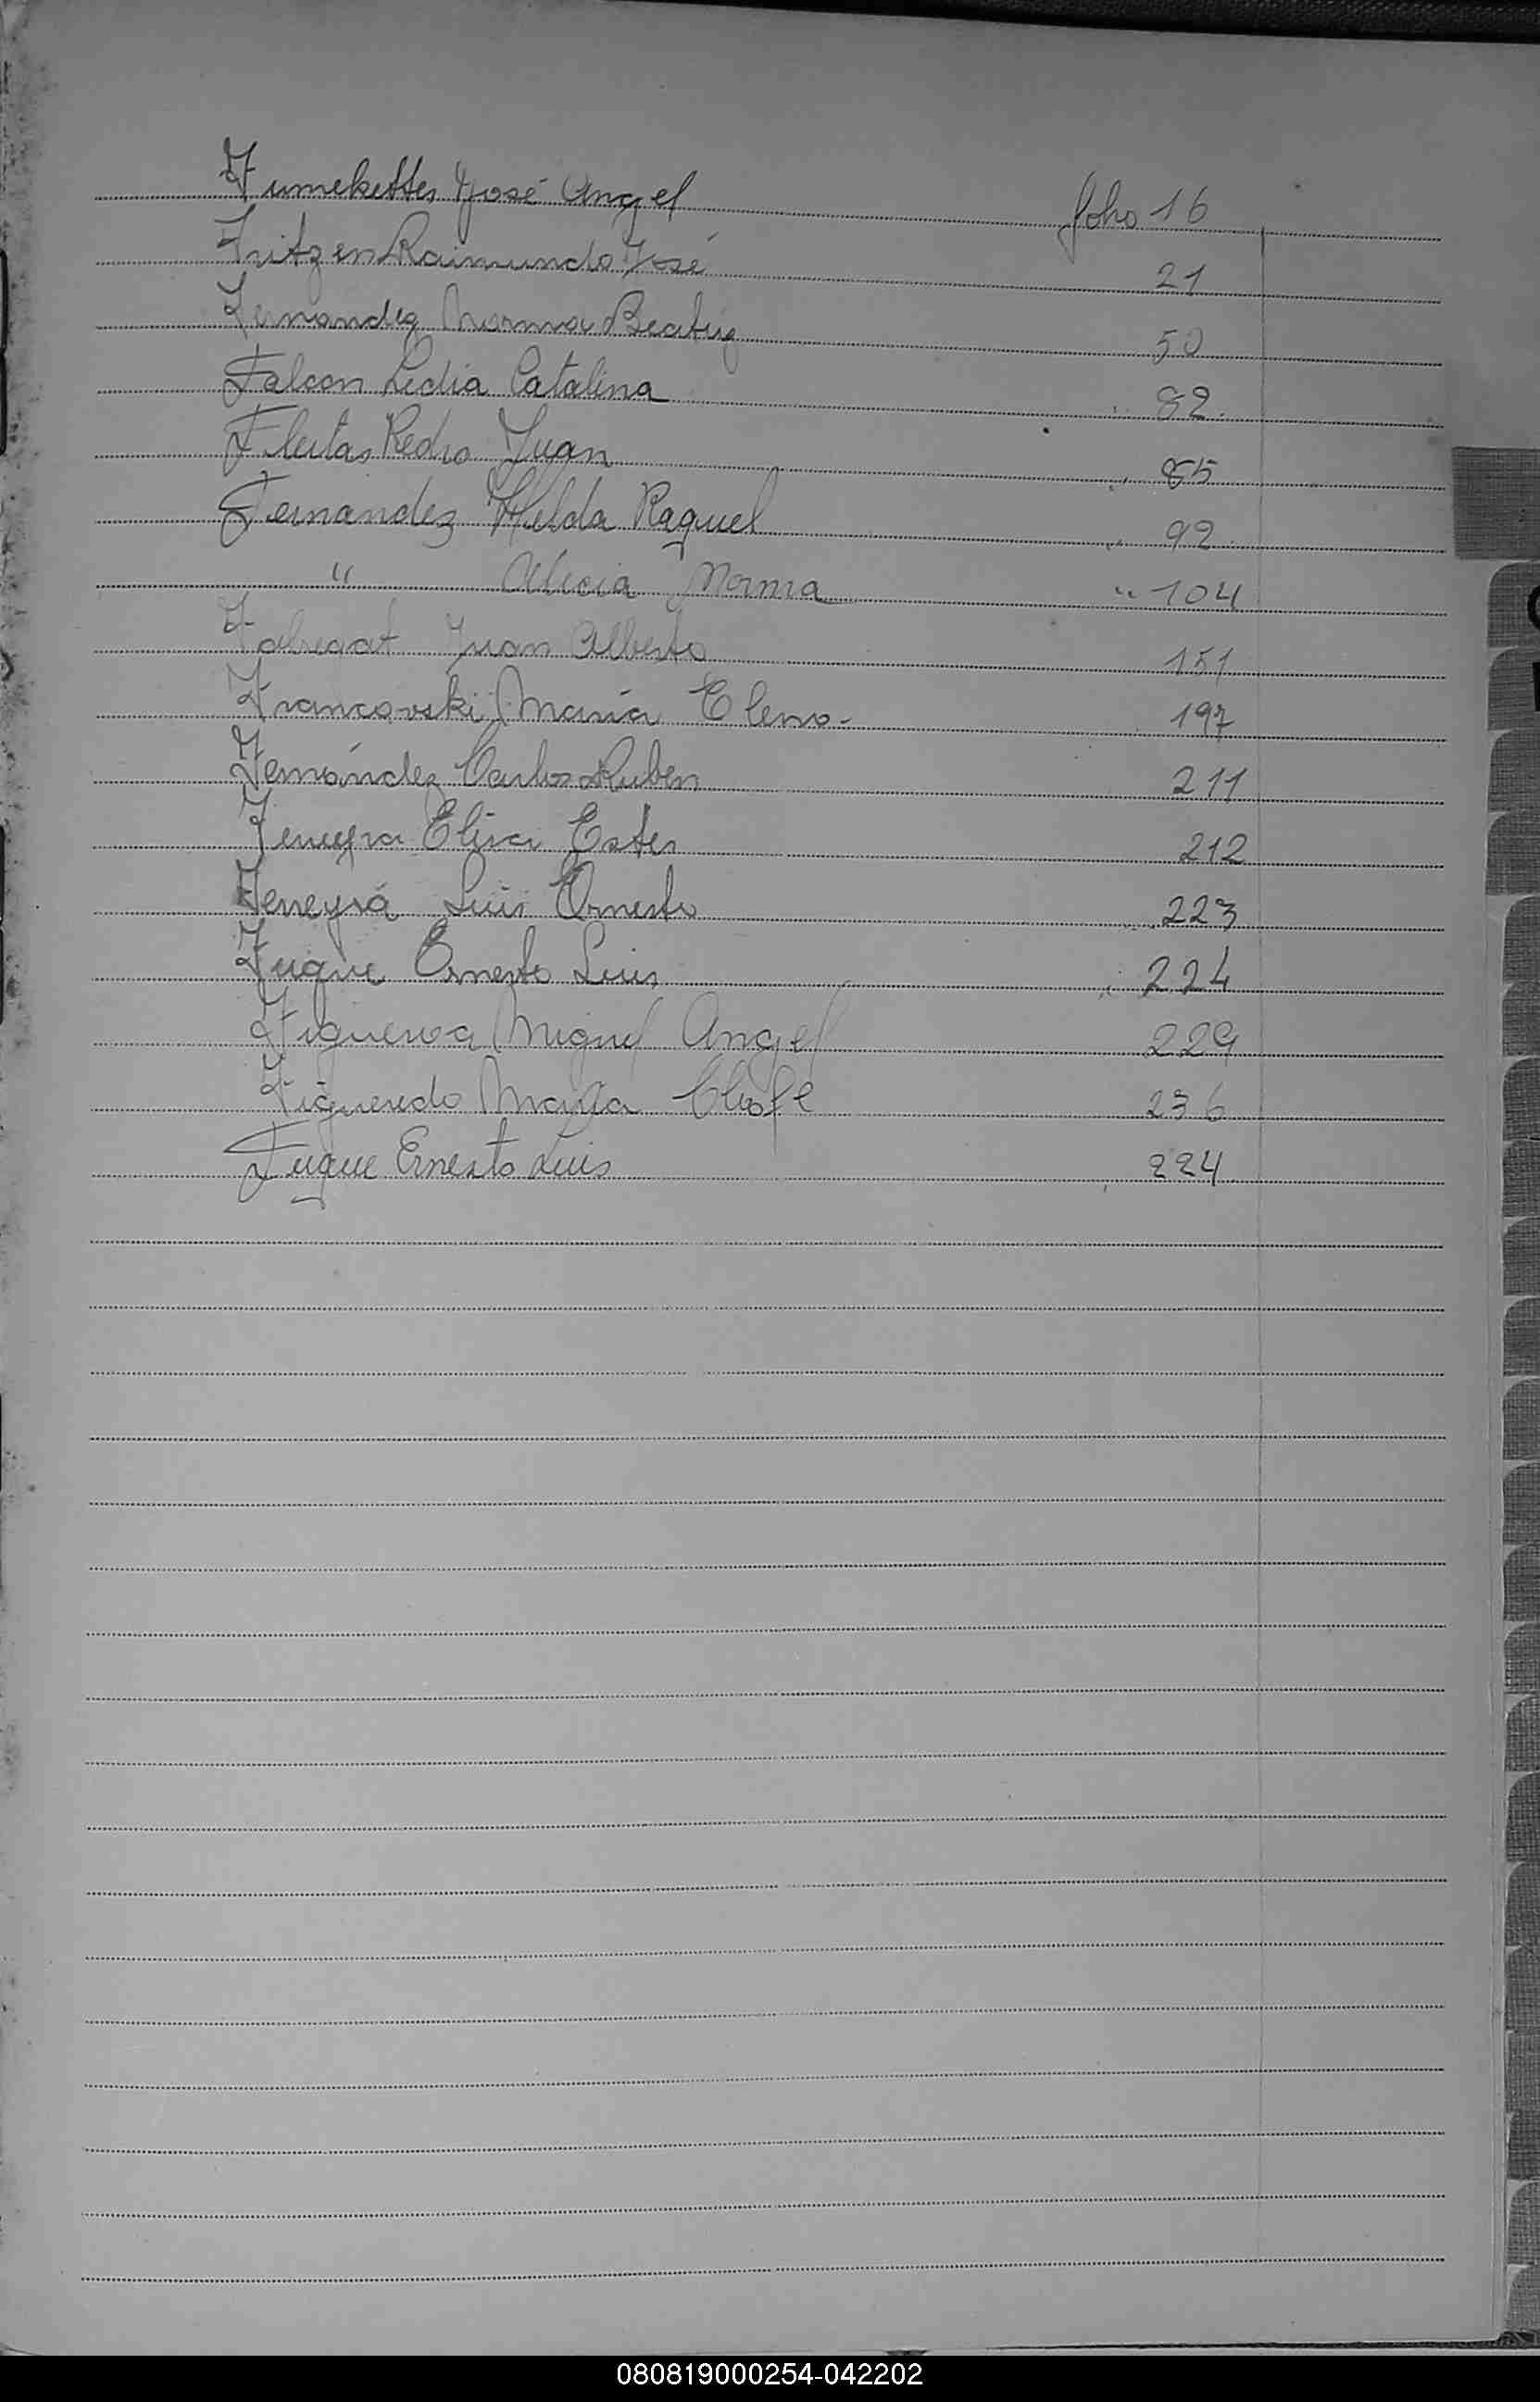 Fumekettes José Angel folio 16
Fritzen Raimundo José 21
Fernandez Norma Beatriz 50
Falcon Lidia Catalina 82
Fleitas Pedro Juan " 85
Fernandez Hilda Raquel " 92
" Alicia Norma " 104
Fabregat Juan Alberto 151
Francovski María Elena- 197
Fernández Carlos Ruben 211
Ferreyra Elisa Ester 212
Ferreyra Luis Ernesto 223
Fuque Ernesto Luis " 224
Figueroa Miguel Angel 229
Figueredo María Cleofe 236
Fuque Ernesto Luis 224
080819000254-042202